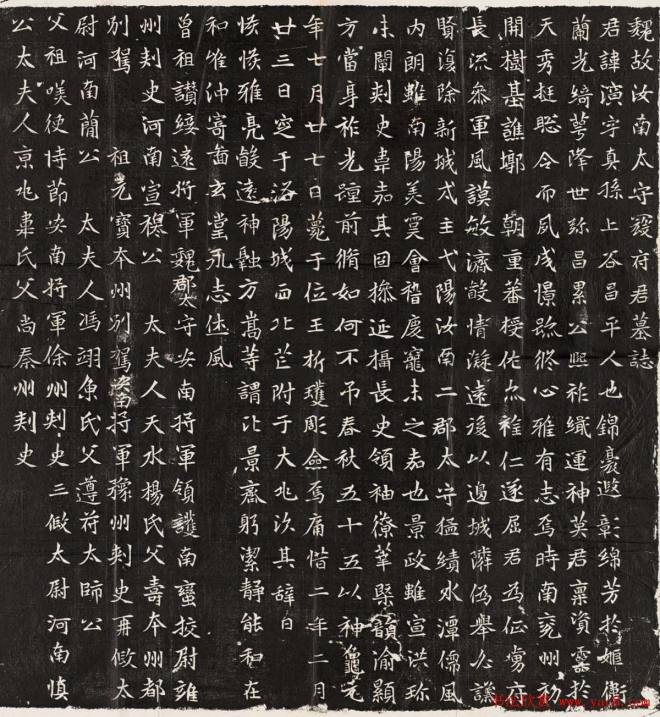 魏故汝南太守寇府君墓誌
君諱演字真孫上谷昌平人也錦裊遐彰綿芳於姬衛
蘭光綺萼降世弥昌累公熙祚織運神英君稟資靈於
天秀挺聡令而夙成憬踪終心雅有志焉時南兗州初
開樹基譙鄴 朝重蕃授佐亦雅仁遂屈君為征虜府
長流參軍風謨敏濟骰情凝遠後以邊城隣偽舉必謙
賢復除新城戍主弋陽汝南二郡太守猛績水潭儒風
内朗雖南陽美寞會稽慶寵未之嘉也景政雖宣洪珎
未闡刾史壽嘉其固摻延攝長史領袖僚菶槩韻渝顯
方當身祚光躔前脩如何不吊春秋五十五以神龜元
年七月廿七日薨于位王折瓊彫僉焉痛惜二年二月
廿三日窆于洛陽城西北芒附于大兆次其辭曰
悏悏雅亮骰遠神融方嵩等謂比景齊躬潔静能和在
和能沖寄啚玄堂永志休風
曾祖讃綏遠将軍魏郡太守安南将軍領護南蠻挍尉雍
州刾史河南宣穆公 太夫人天水楊氏父壽本州都
別駕 祖元寶本州別駕安南将軍豫州刾史再假太
尉河南蕳公 太夫人馮翊魚氏父遵苻太師公
父祖嘆使持節安南将軍徐州刾史三假太尉河南慎
公太夫人京兆韋氏父尚秦州刾史